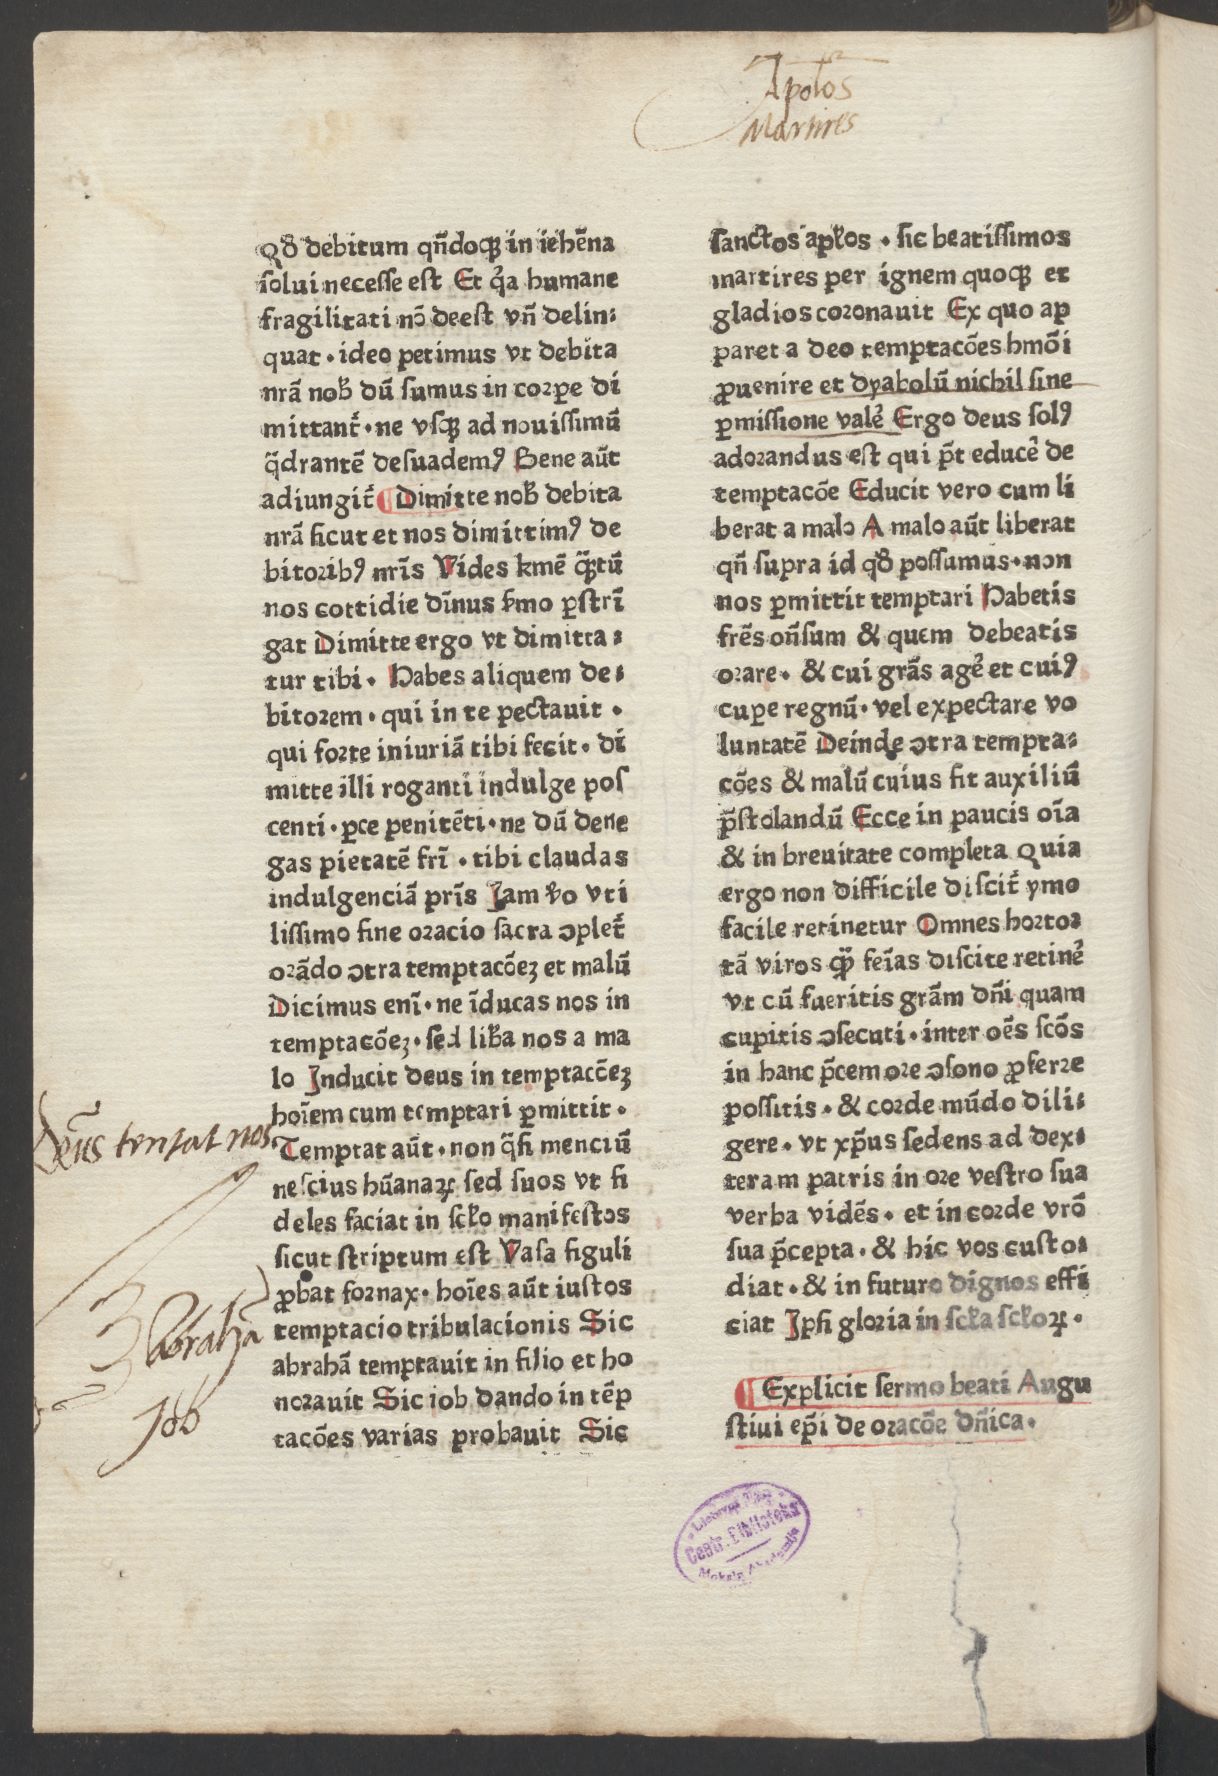 Apo̅los
Martires
Qð debitum qn̄doqꝫ in iehēna
ſolui necesse est Et qͥa humane
fragilitati nō deest vn̄ delin⸗
quat · ideo petimus vt debita
nr̄ā nob̄ dū ſumus in corꝑe di
mittant᷑ · ne vſqꝫ ad nouissimū
q̄drantē deſuademꝰ Bene aūt
adiungit᷑ Dimitte nob̄ debita
nr̄ā ſicut et nos dimittimꝰ de
bitoribꝰ nr̄is Vides kmē qͣꝫtū
nos cottidie dīnus ẜmo ꝑſtrī
gat Dimitte ergo vt dimitta⸗
tur tibi · Habes aliquem de⸗
bitorem · qui in te pectauit ·
qui forte iniuriā tibi fecit · di
mitte illi roganti indulge poſ
centi · ꝑce penitēti · ne dū dene
gas pietatē fr̄i · tibi claudas
indulgenciā pr̄is Jam ꝟo vti
lissimo fine oracio ſacra ↄplet᷑
orādo ↄtra temptacōeꝫ et malū
Dicimus enī · ne īducas nos in
temptacōeꝫ · ſed lib̄a nos a ma
lo Inducit deus in temptacōeꝫ
hoīem cum temptari ꝑmittit ·
Temptat aūt · non qͣſi menciū
neſcius hūanaꝝ ſed ſuos vt fi
deles faciat in ſcl̄o manifestos
ſicut ſtriptum est Vaſa figuli
ꝓbat fornax · hoīes aūt iustos
temptacio tribulacionis Sic
abrahā temptauit in filio et ho
norauit Sic iob dando in tēp
tacōes varias probauit Sic
Deus tentat nos
Abrahā
Job
ſanctos apl̄os · ſic beatissimos
martires per ignem quoqꝫ et
gladios coronauit Ex quo ap
paret a deo temptacōes hmōi
ꝓuenire et dyabolū nichil ſine
ꝑmissione vale᷑ Ergo deus ſolꝰ
adorandus est qui pt̄ educe᷑ de
temptacōe Educit vero cum li
berat a malo A malo aūt liberat
qn̄ ſupra id qð possumus · non
nos ꝑmittit temptari Habetis
fr̄es on̄sum & quem debeatis
orare · & cui gr̄as age᷑ et cuiꝰ
cuꝑe regnū · vel expectare vo
luntatē Deinde ↄtra tempta⸗
cōes & malū cuius ſit auxiliū
p̄ſtolandū Ecce in paucis oīa
& in breuitate completa Quia
ergo non difficile diſcit᷑ ymo
facile retinetur Omnes hortor
tā viros qͣꝫ feīas diſcite retine᷑
vt cū fueritis gr̄am dn̄i quam
cupitis ↄſecuti · inter oēs ſcōs
in hanc p̄cem ore ↄſono ꝓferre
possitis · & corde mūdo dili⸗
gere · vt xp̄us ſedens ad dex⸗
teram patris in ore vestro ſua
verba vidēs · et in corde vrō
ſua p̄cepta · & hic vos custo⸗
diat · & in futuro dignos effi
ciat Ipſi gloria in ſcl̄a ſcl̄oꝝ ·
Explicit ſermo beati Augu
ſtiui ep̄i de oracōe dn̄ica ·
Centr. Biblioteka
Mokslų Akademija